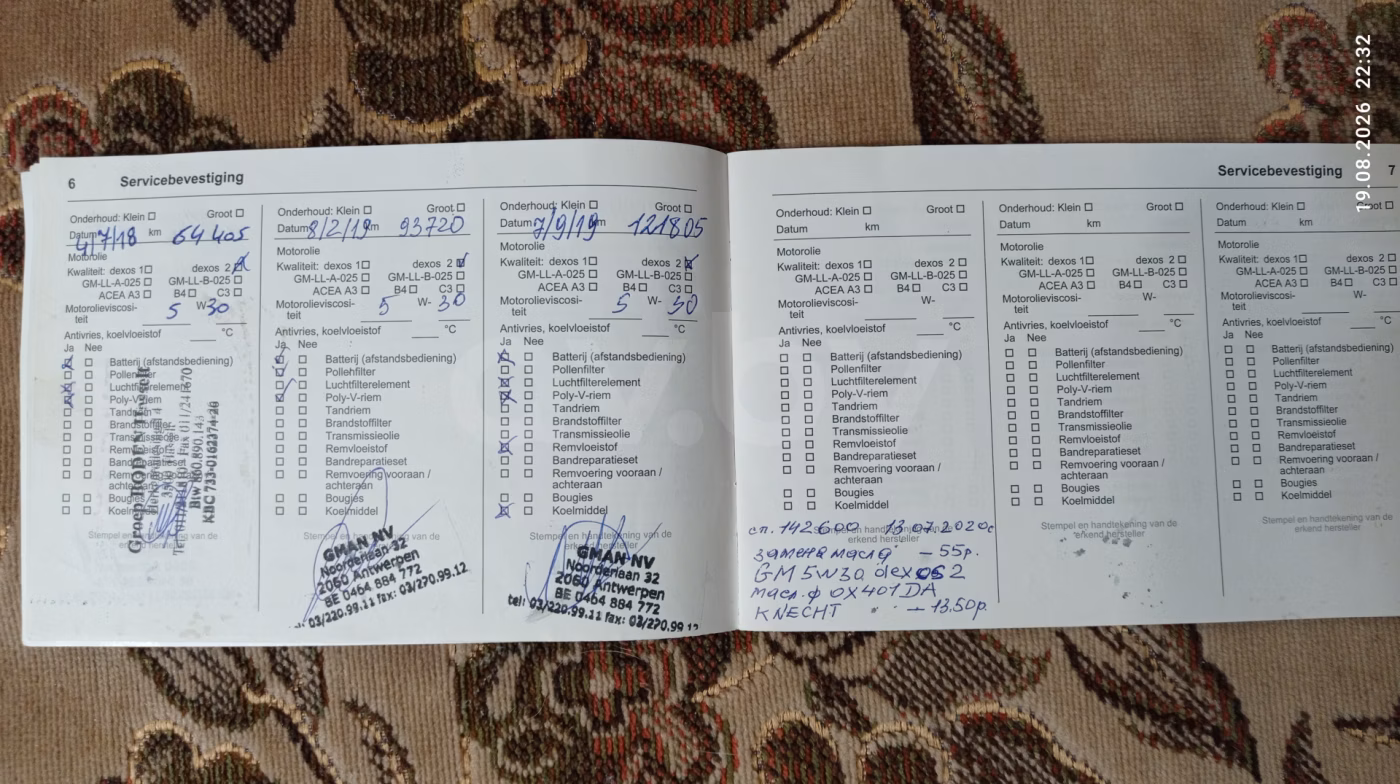 19.08.2026 22:32
6 Servicebevestiging
Onderhoud: Klein □ Groot □
Datum 4/7/18 km 64405
Motorolie
Kwaliteit: dexos 1□ dexos 2□
GM-LL-A-025 □ GM-LL-B-025□
ACEA A3 □ B4 □ C3 □
Motorolieviscosi- 5 W-30
teit
Antivries, koelvloeistof °C
Ja Nee
□ □ Batterij (afstandsbediening)
□ □ Pollenfilter
□ □ Luchtfilterelement
□ □ Poly-V-riem
□ □ Tandriem
□ □ Brandstoffilter
□ □ Transmissieolie
□ □ Remvloeistof
□ □ Bandreparatieset
□ □ Remvoering vooraan /
achteraan
□ □ Bougies
□ □ Koelmiddel
Groep
KBC 733-0162374-20
Onderhoud: Klein □ Groot □
Datum 8/2/19 km 93720
Motorolie
Kwaliteit: dexos 1□ dexos 2□
GM-LL-A-025 □ GM-LL-B-025□
ACEA A3 □ B4□ C3 □
Motorolieviscosi- 5 W- 30
teit
Antivries, koelvloeistof °C
Ja Nee
□ □ Batterij (afstandsbediening)
□ □ Pollenfilter
□ □ Luchtfilterelement
□ □ Poly-V-riem
□ □ Tandriem
□ □ Brandstoffilter
□ □ Transmissieolie
□ □ Remvloeistof
□ □ Bandreparatieset
□ □ Remvoering vooraan /
achteraan
□ □ Bougies
□ □ Koelmiddel
GMAN NV
Noorderlaan 32
2060 Antwerpen
BE 0464 884 772
tel: 03/220.99.11 fax: 03/270.99.12
Onderhoud: Klein □ Groot □
Datum 7/9/19 km 121805
Motorolie
Kwaliteit: dexos 1□ dexos 2□
GM-LL-A-025 □ GM-LL-B-025□
ACEA A3 □ B4□ C3 □
Motorolieviscosi- 5 W- 30
teit
Antivries, koelvloeistof °C
Ja Nee
□ □ Batterij (afstandsbediening)
□ □ Pollenfilter
□ □ Luchtfilterelement
□ □ Poly-V-riem
□ □ Tandriem
□ □ Brandstoffilter
□ □ Transmissieolie
□ □ Remvloeistof
□ □ Bandreparatieset
□ □ Remvoering vooraan /
achteraan
□ □ Bougies
□ □ Koelmiddel
Stempel en handtekening van de
erkend hersteller
GMAN NV
Noorderlaan 32
2060 Antwerpen
BE 0464 884 772
tel: 03/220.99.11 fax: 03/270.99.12
Servicebevestiging 7
Onderhoud: Klein □ Groot □
Datum km
Motorolie
Kwaliteit: dexos 1□ dexos 2□
GM-LL-A-025 □ GM-LL-B-025□
ACEA A3 □ B4□ C3 □
Motorolieviscosi- W-
teit
Antivries, koelvloeistof °C
Ja Nee
□ □ Batterij (afstandsbediening)
□ □ Pollenfilter
□ □ Luchtfilterelement
□ □ Poly-V-riem
□ □ Tandriem
□ □ Brandstoffilter
□ □ Transmissieolie
□ □ Remvloeistof
□ □ Bandreparatieset
□ □ Remvoering vooraan /
achteraan
□ □ Bougies
□ □ Koelmiddel
Stempel en handtekening van de
erkend hersteller
сп. 142600 13.07.2020г
замена масла - 55р.
GM 5W30 dexos 2
масл.ф OX401DA
KNECHT - 13.50р.
Onderhoud: Klein □ Groot □
Datum km
Motorolie
Kwaliteit: dexos 1□ dexos 2 □
GM-LL-A-025 □ GM-LL-B-025□
ACEA A3 □ B4□ C3 □
Motorolieviscosi- W-
teit
Antivries, koelvloeistof °C
Ja Nee
□ □ Batterij (afstandsbediening)
□ □ Pollenfilter
□ □ Luchtfilterelement
□ □ Poly-V-riem
□ □ Tandriem
□ □ Brandstoffilter
□ □ Transmissieolie
□ □ Remvloeistof
□ □ Bandreparatieset
□ □ Remvoering vooraan /
achteraan
□ □ Bougies
□ □ Koelmiddel
Stempel en handtekening van de
erkend hersteller
Onderhoud: Klein □ Groot □
Datum km
Motorolie
Kwaliteit: dexos 1□ dexos 2□
GM-LL-A-025 □ GM-LL-B-025□
ACEA A3 □ B4□ C3
Motorolieviscosi- W-
teit
Antivries, koelvloeistof
Ja Nee
□ □ Batterij (afstandsbediening)
□ □ Pollenfilter
□ □ Luchtfilterelement
□ □ Poly-V-riem
□ □ Tandriem
□ □ Brandstoffilter
□ □ Transmissieolie
□ □ Remvloeistof
□ □ Bandreparatieset
□ □ Remvoering vooraan /
achteraan
□ □ Bougies
□ □ Koelmiddel
Stempel en handtekening van de
erkend hersteller